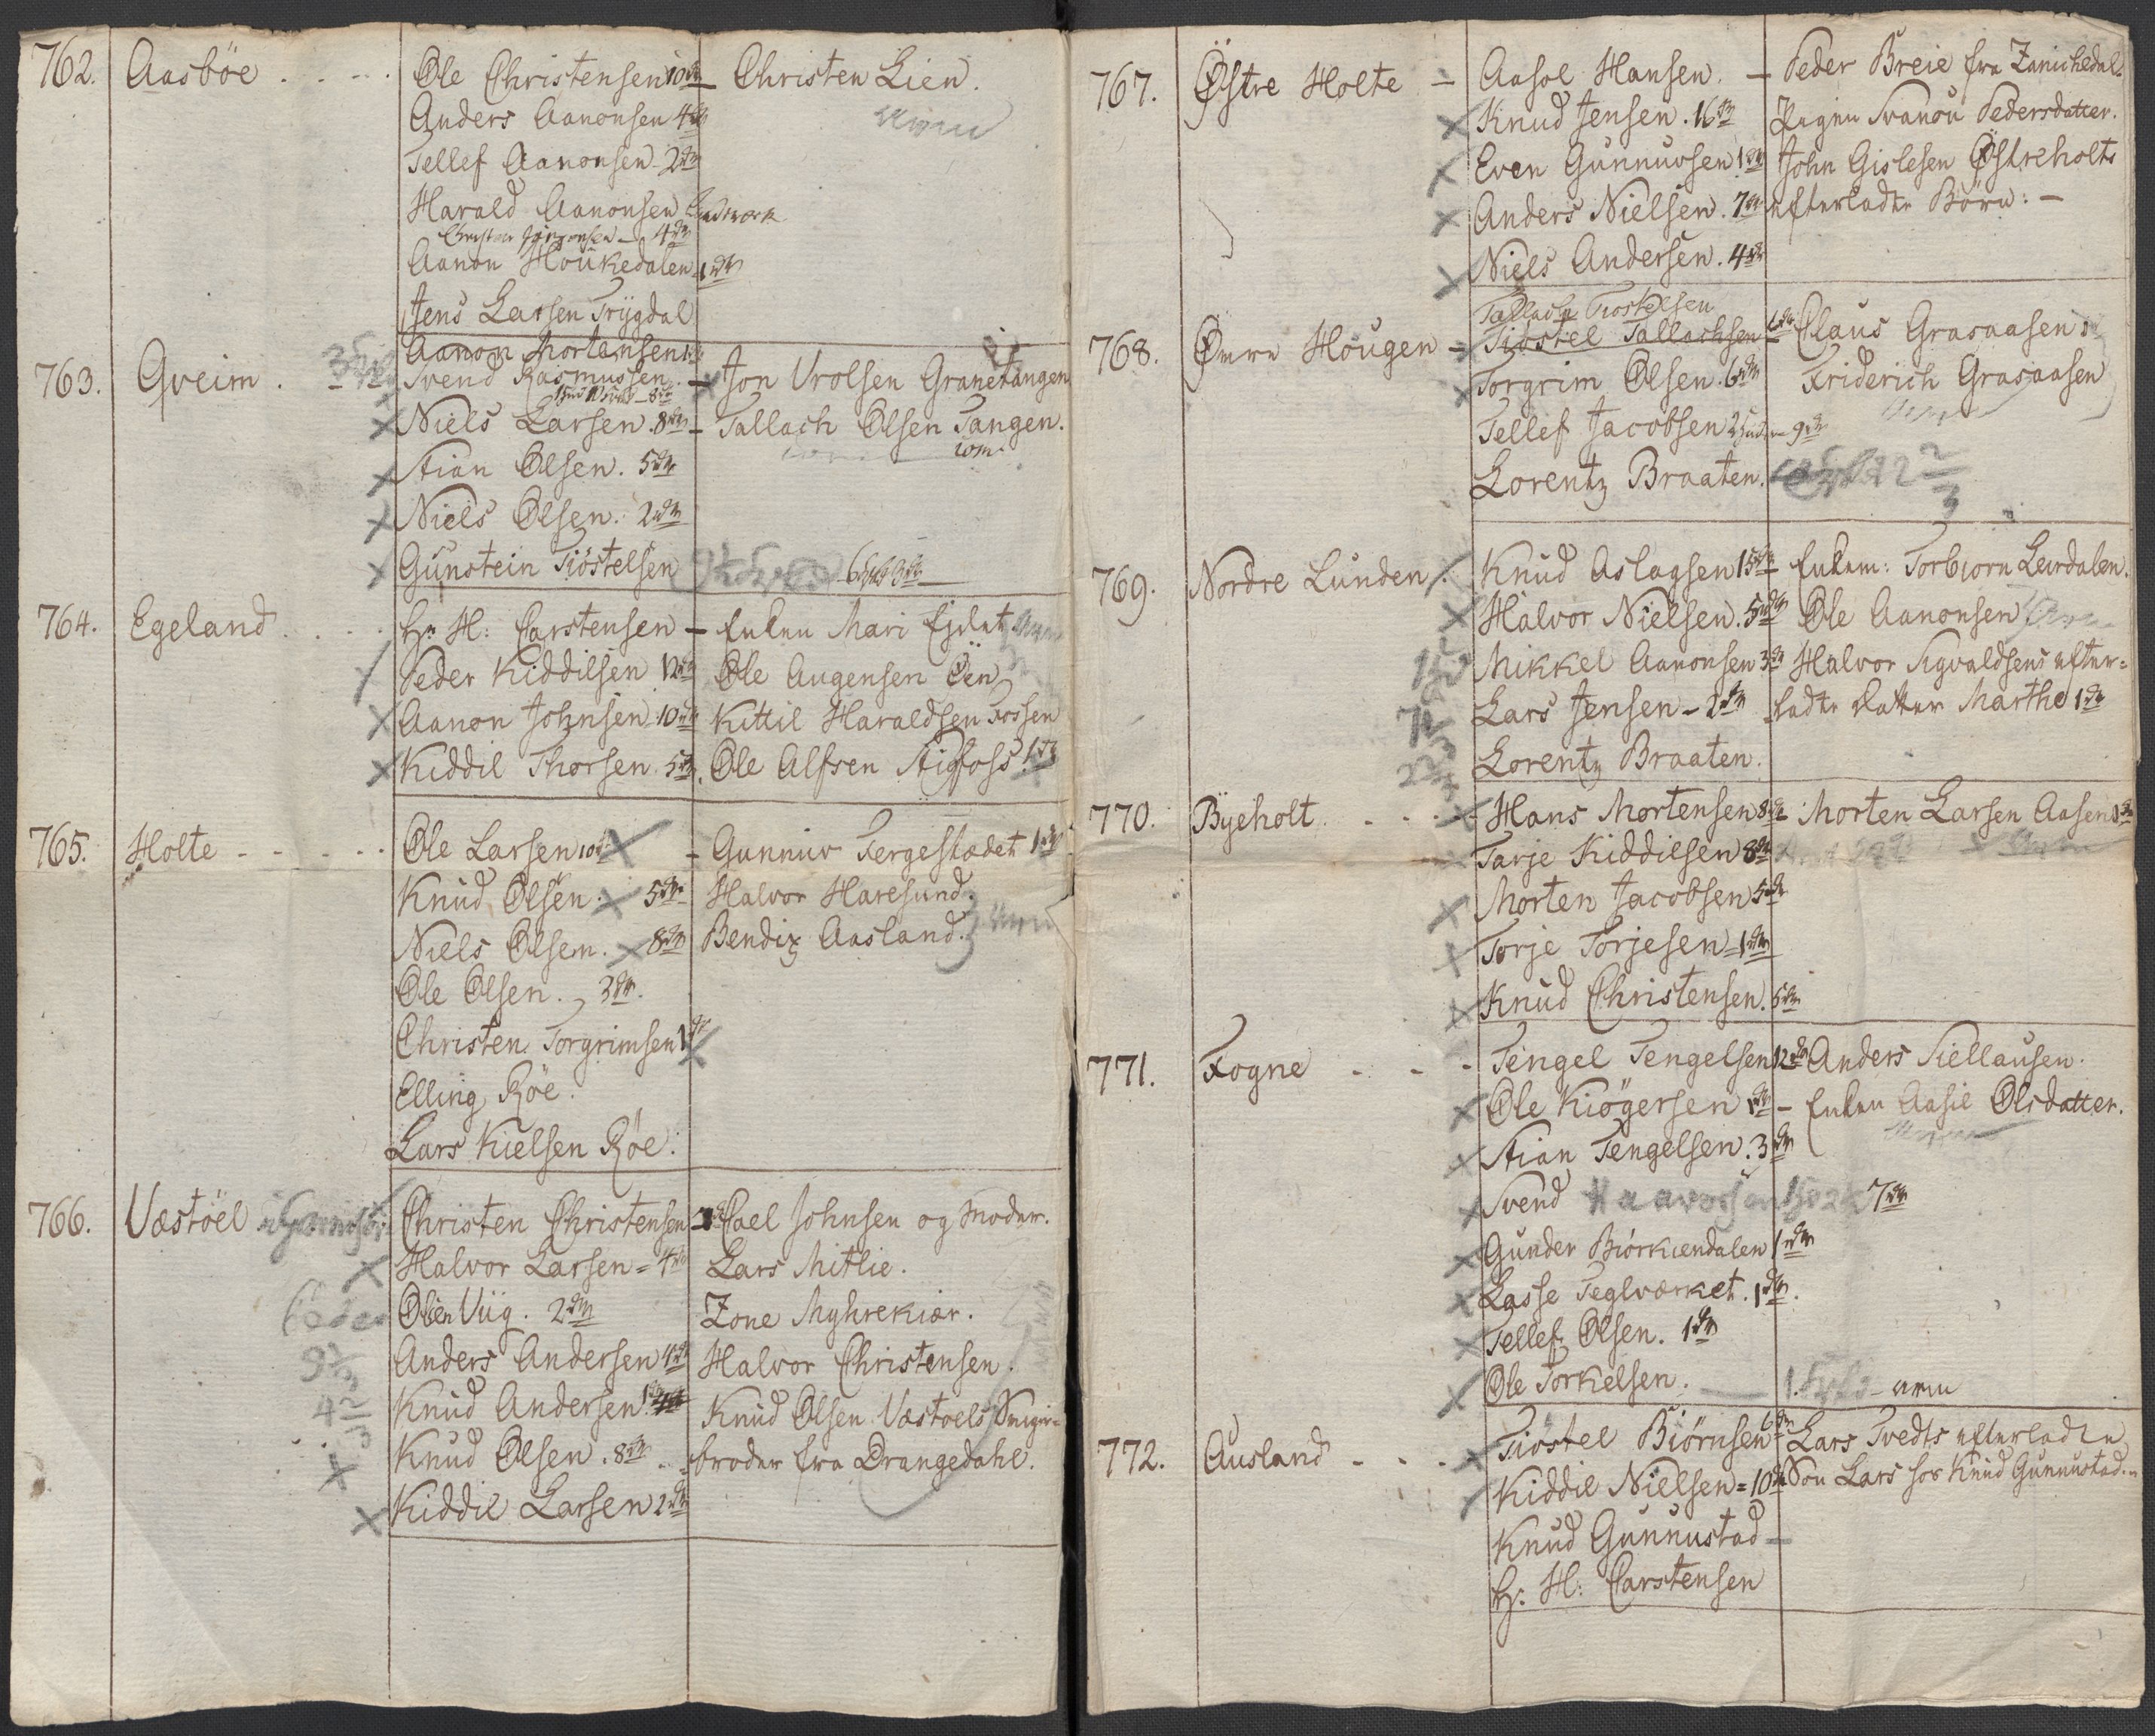 762. Aasböe . . . . Ole Christensen 10 — Christen Lien.
Anders Aanonsen 4
Tellef Aanonsen 2
Harald Aanonsen
4
Aanon Houkedalen 1
Jens Larsen Trygdal
Aanon Mortensen
763. Gveim . Svend Rasmussen — Jon Vrolsen Granetangen
Niels Larsen. 8 — Tallach Olsen Tangen.
Stian Olsen. 5
Niels Olsen. 2
Gunstein Tiöstelsen
764. Egeland . . . . Hr. H: Carstensen — Enken Mari
Peder Kiddilsen 12 Ole Augensen Öen
Aanon Johnsen 10 Kittil Haraldsen Fossen
Kiddil Thorsen 5 Ole Alfsen Stigfoss
765. Holte - - - - Ole Larsen 10 — Gunnuv Fergestædet 1
Knud Olsen. 5 Halvor Haresund.
Niels Olsen. 8 Bendix Aasland.
Ole Olsen. 3
Christen Torgrimsen 1
Elling Röe.
Lars Kielsen Röe.
766. Væstöel Christen Christensen — Cael Johnsen og Moder.
Halvor Larsen = 4 Lars Mitlie.
Olien Viig. 2 Zone Myhrekiær.
Anders Andersen 4 Halvor Christensen.
Knud Andersen Knud Olsen Væstoels Svigir=
Knud Olsen. 8 broder fra Drangedahl.
Kiddil Larsen 2
767. Östre Holte — Aasol Hansen. — Peder Breie fra Zanichedal
Knud Jensen. 16 Pigen Svanou Pedersdatter.
Even Gunnuvsen 1 John Gislesen Östreholts
Anders Nielsen. 7 efterladte Börn: —
Niels Andersen. 4
Tallach Tiostelsen
768. Övre Hougen — Tiöstel Tallachsen 6 Claus Grasaasen
Torgrim Olsen. 6 Friderich Grasaasen
Tellef Jacobsen 9
Lorentz Braaten.
769. Nordre Lunden. Knud Aslagsen 15 Enkem: Torbiorn Leirdalen.
Halvor Nielsen. 5 Ole Aanonsen
Mikkel Aanonsen 3 Halvor Sigvaldsens efter=
Lars Jensen — 2 ladte Datter Marthe 1
Lorentz Braaten.
770. Byeholt . . . . Hans Mortensen 8 Morten Larsen Aasen
Tarje Kiddilsen 8
Morten Jacobsen 5
Torje Torjesen = 1
Knud Christensen. 5
771. Fogne - - - Tengel Tengelsen 12 Anders Siellausen.
Ole Kiögersen 1 — Enken Aasil Olsdatter.
Stian Tengelsen. 3
Svend Haavorsen 7
Gunder Biorkiendalen 1
Lasse Teglværket. 1
Tellef Olsen. 1
Ole Torkelsen.
772. Ausland - - - Tiöstel Biörnsen 6 Lars Tvedts efterladte
Kiddil Nielsen = 10 Søn Lars hos Knud Gunnustad.
Knud Gunnustad —
Hr. H: Carstensen